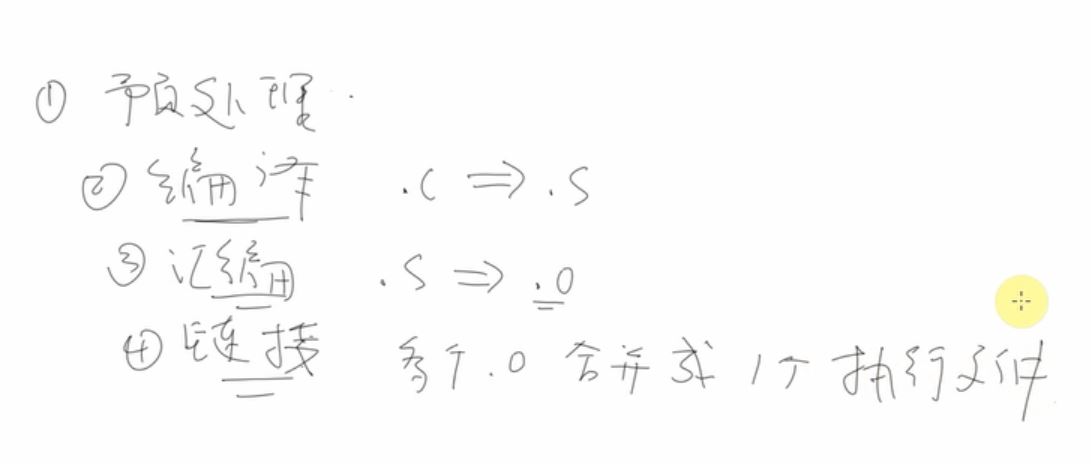 ① 预处理.
② 编译 .c ⇒ .s
③ 汇编 .s ⇒ .o
④ 链接 多个.o 合并成 1个 执行文件